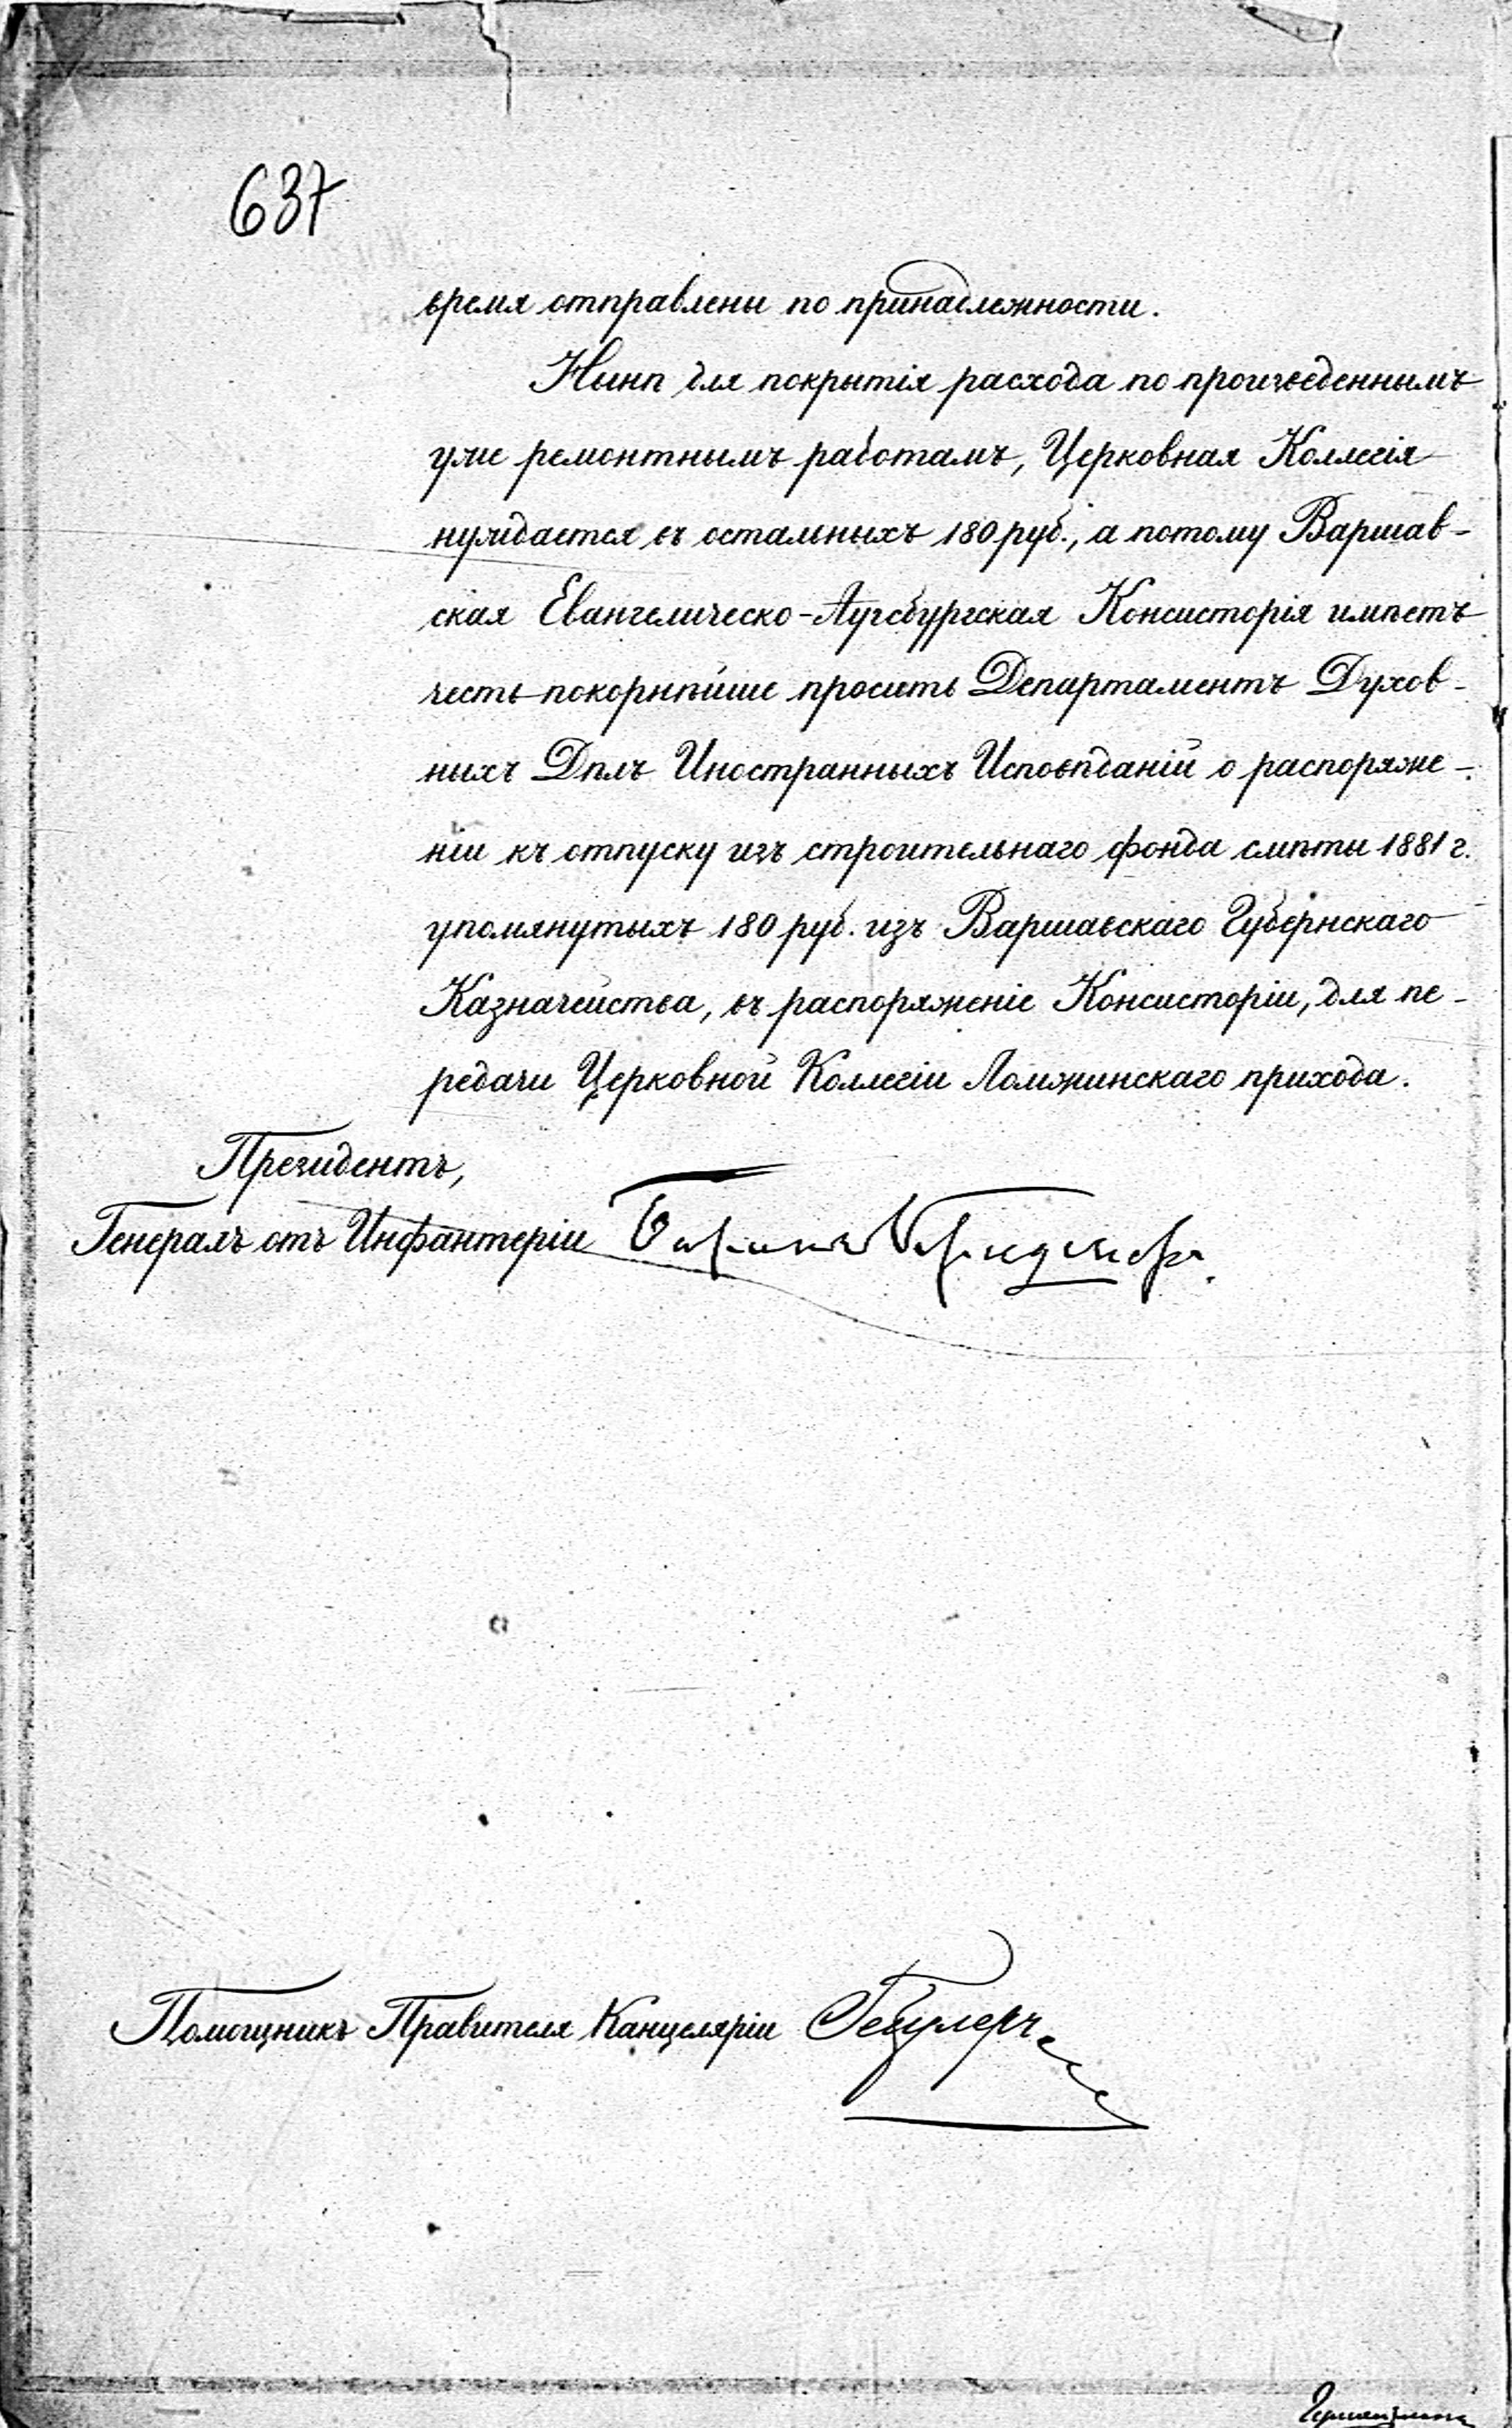 637
время отправлены по принадлежности.
Нынѣ для покрытія расхода по произведеннымъ
уже ремонтнымъ работамъ, Церковная Коллегія
нуждается въ остальныхъ 180 руб., а потому Варшав-
ская Евангелическо-Аугсбургская Консисторія имѣетъ
честь покорнѣйше просить Департаментъ Духов-
ныхъ Дѣлъ Иностранныхъ Исповѣданій о распоряже-
ніи къ отпуску изъ строительнаго фонда смѣты 1881 г.
упомянутыхъ 180 руб. изъ Варшавскаго Губернскаго
Казначейства, въ распоряженіе Консисторіи, для пе-
редачи Церковной Коллегіи Ломжинскаго прихода.
Президентъ,
Генералъ отъ Инфантеріи Баронъ
Помощникъ Правителя Канцеляріи